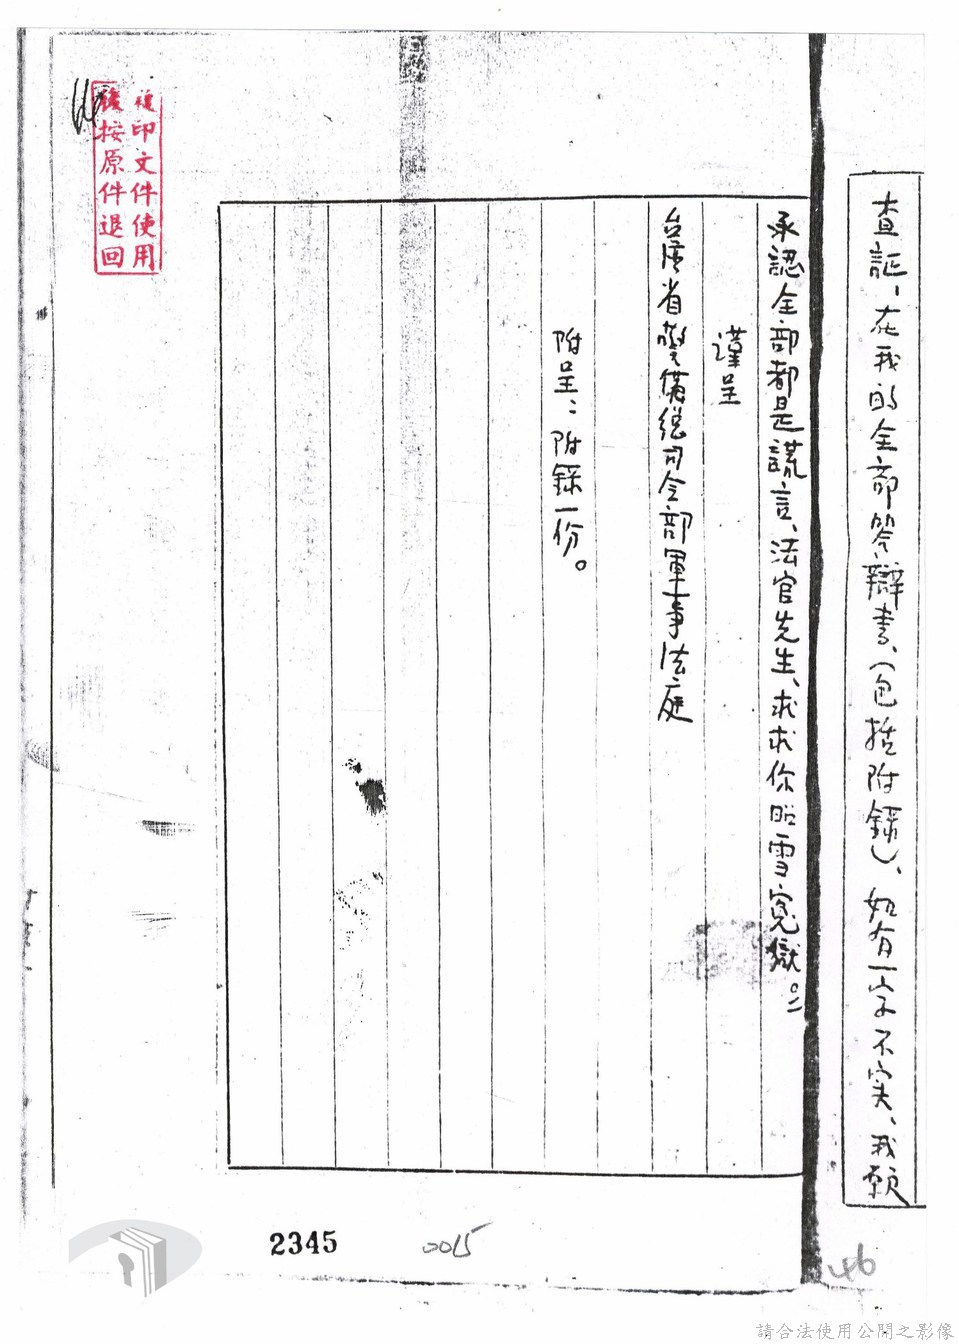 查証、在我的全部答辯書、(包括附錄)、如有一字不实、我願
承認全部都是謊言、法官先生、求求你昭雪冤獄。
谨呈
台湾省警備総司令部軍事法庭
附呈:附錄一份。
複印文件使用
後按原件退回
2345
0015
46
請合法使用公開之影像